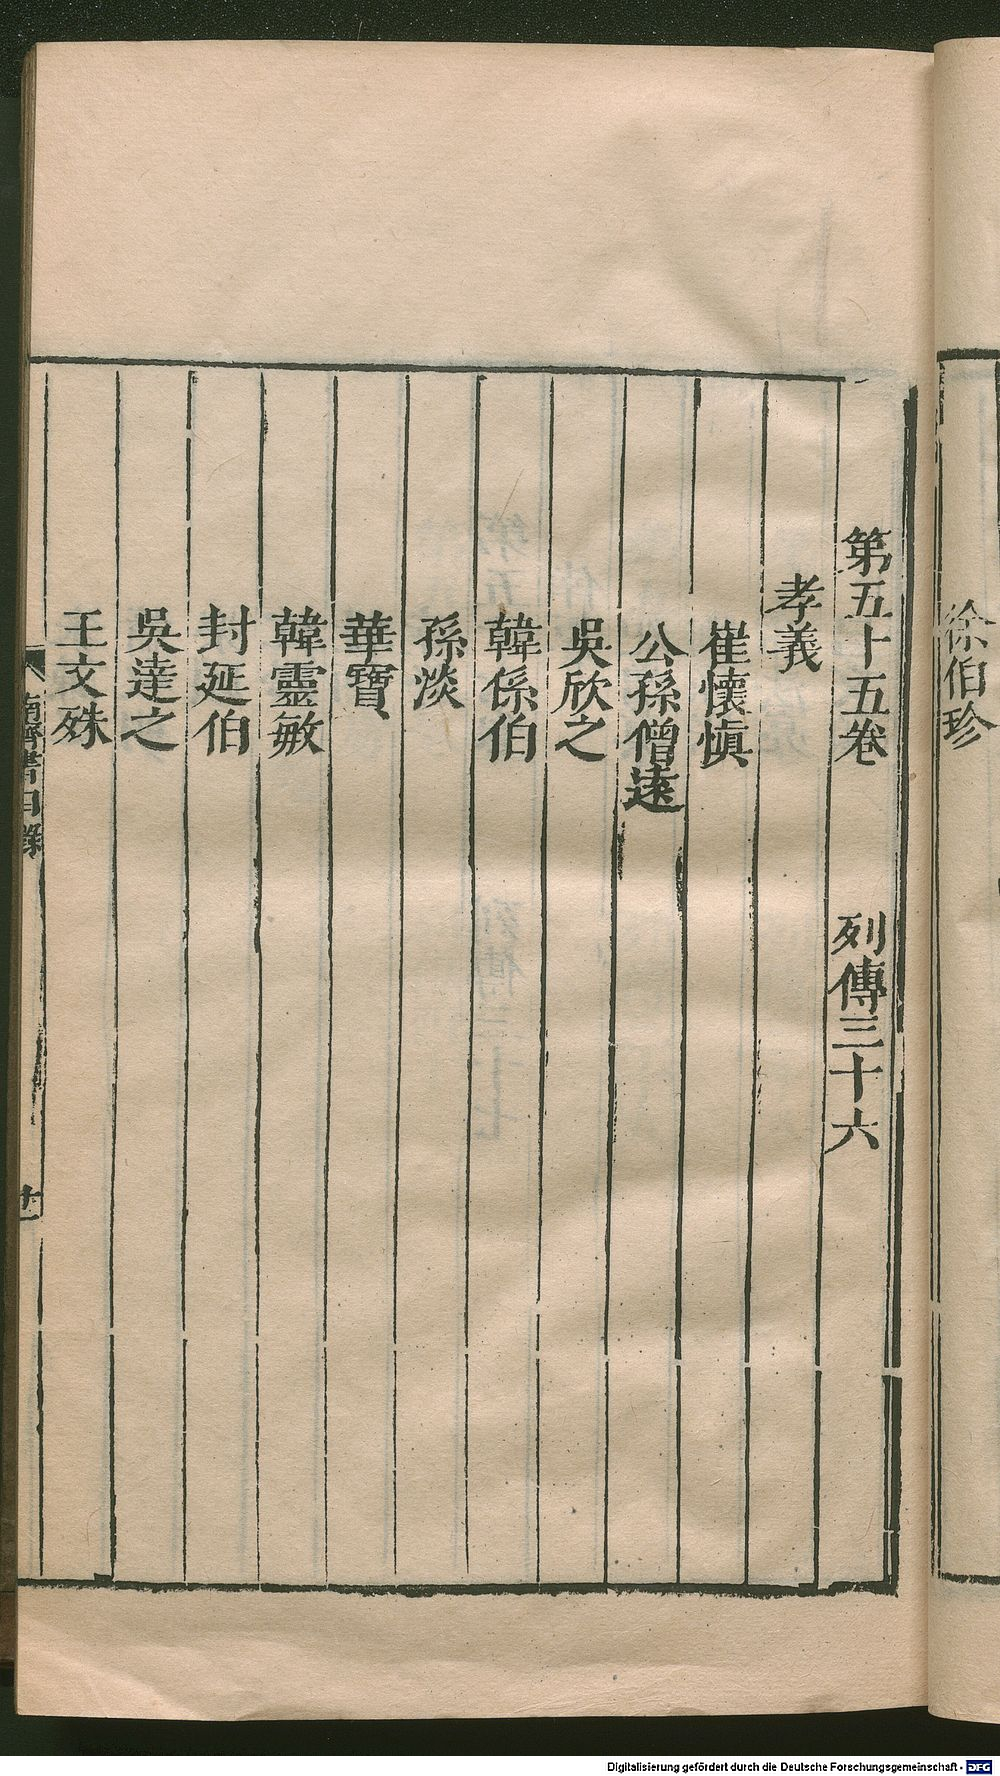 徐伯珍
第五十五卷　列傳三十六
孝義
崔懷愼
公孫僧遠
吳欣之
韓係伯
孫淡
華寶
韓靈敏
封延伯
吳達之
王文殊
南齊書目錄
Digitalisierung gefördert durch die Deutsche Forschungsgemeinschaft - DFG